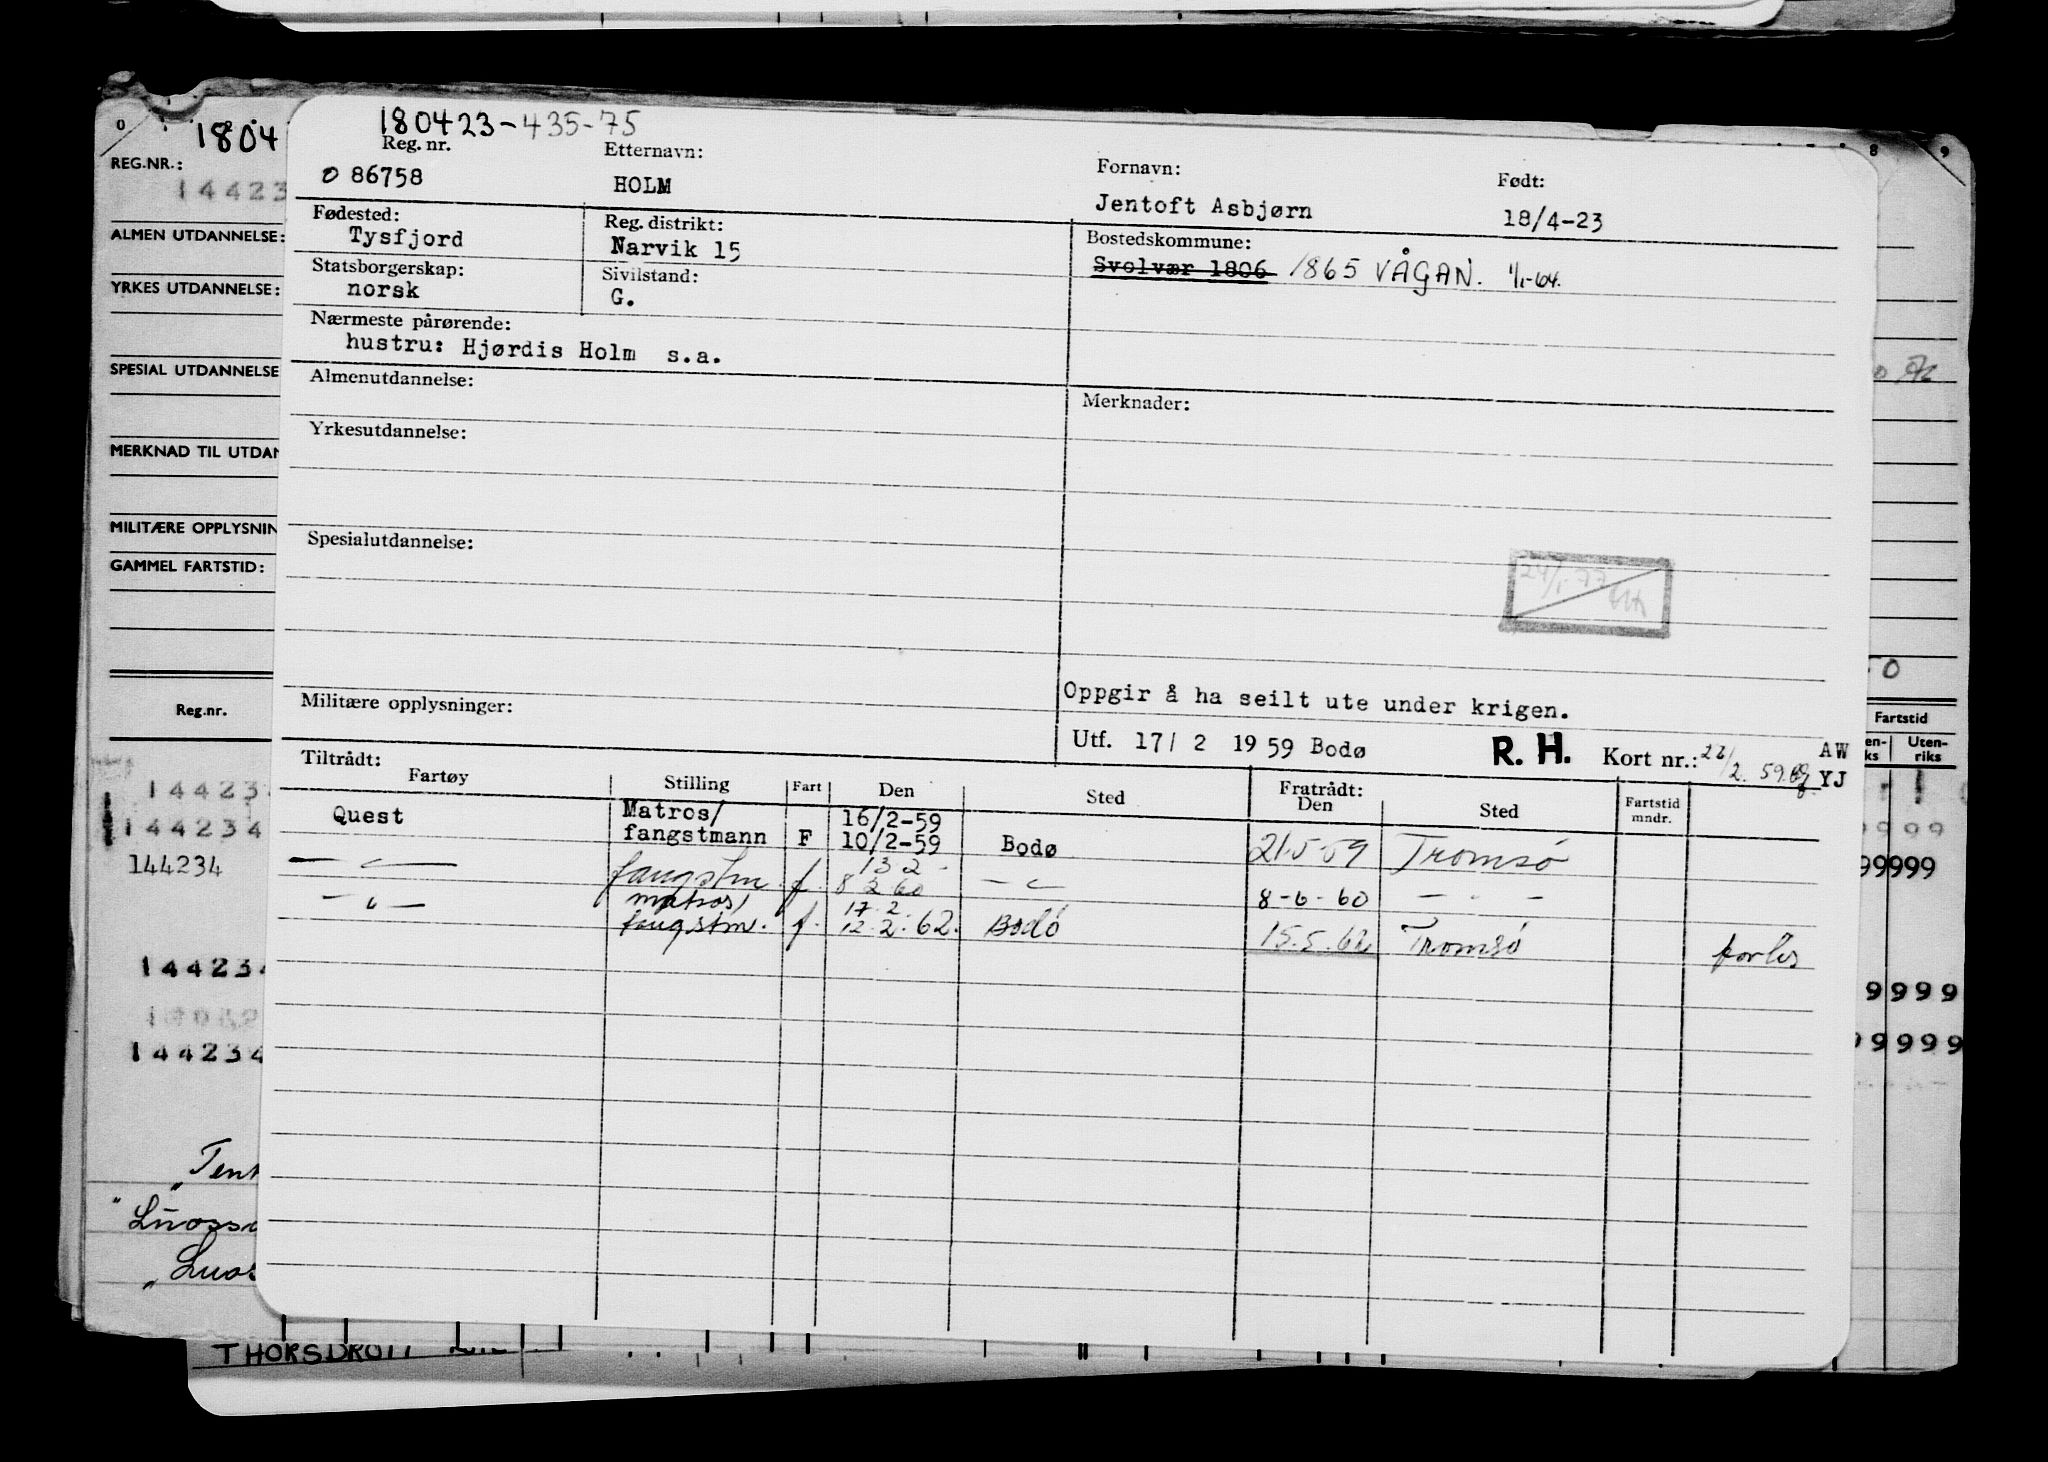 180423-435-75
Reg. nr. Etternavn: Fornavn: Født:
0 86758 HOLM Jentoft Asbjørn 18/4-23
Fødested: Reg. distrikt: Bostedskommune:
Tysfjord Narvik 15 Svolvær 1806 1865 VÅGAN. 1/1-64.
Statsborgerskap: Sivilstand:
norsk G.
Nærmeste pårørende:
hustru: Hjørdis Holm s.a.
Almenutdannelse: Merknader:
Yrkesutdannelse:
Spesialutdannelse:
24/1-77
Oppgir å ha seilt ute under krigen.
Militære opplysninger:
Utf. 17/ 2 1959 Bodø R. H. Kort nr.: 59 AW
YJ
Tiltrådt: Fratrådt:
Fartøy Stilling Fart Den Sted Den Sted Fartstid mndr.
Quest Matros/ 16/2-59
fangstmann F 10/2-59 Bodø 21-5-59 Tromsø
— " — fangstm. f. 13 2
8 2 60 — " — 8-6-60 — " —
— " — matros/ 17.2.
fangstm. f. 12.2.62. Bodø 15.5.62 Tromsø forlis
1804
REG.NR.:
14423
ALMEN UTDANNELSE:
YRKES UTDANNELSE:
SPESIAL UTDANNELSE
MERKNAD TIL UTDAN
MILITÆRE OPPLYSNIN
GAMMEL FARTSTID:
Reg.nr.
14423
144234
144234
144234
144234
"Luossa
THORSDROTT
8 9
0
Fartstid
Uten-
riks
99
99999
9999
99999